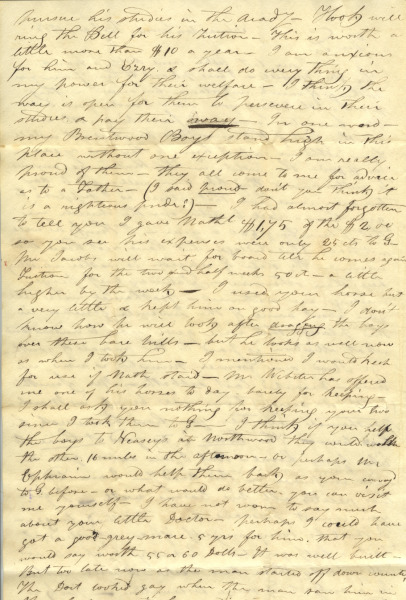 pursue his studies in the Acady - Hook will
ring the Bell for his Tuition - This is worth a
little more than $10 a year - I am anxious
for him and Ezry. & shall do every thing in
my power for their welfare - I think the
way is open for them to persevere in their
studies & pay their ways - In one word -
my Brentwood Boys stand high in this
place without one exception - I am really
proud of them - they all come to me for advice
as to a Father - (I said proud don't you think it
is a righteous pride?) - I had almost forgotten
to tell you I gave Nathl $1,75 of the $2 00
so you see his expenses were only 25 cts to G -
Mr Jacobs will wait for board till he comes again
Tuition for the two and half weeks 50 ct - a little
higher by the week - I used your horse but
a very little & kept him on good hay - I don't
know how he will look after draging the boys
over these bare hills - but he looks as well now
as when I took him - I mentioned I wanted
for use if Nath staid - Mr Webster has offered
me one of his horses to day barely for keeping -
I shall ask you nothing for keeping yours two
since I took them to G - I think if you help
the boys to Heaseys at Northwood they would walk
the other 16 miles in the afternoon - or perhaps Mr
Ephraim would help them back as you
to G before - or what would do better, you can visit
me yourself - I have not room to say much
about your little Doctor - perhaps I could have
got a good grey mare 5 yrs for him. that you
would say worth 55 or 60 Dolls - It was well built -
But two late now as the man started off down country
The Doct looked gay when the man saw him in